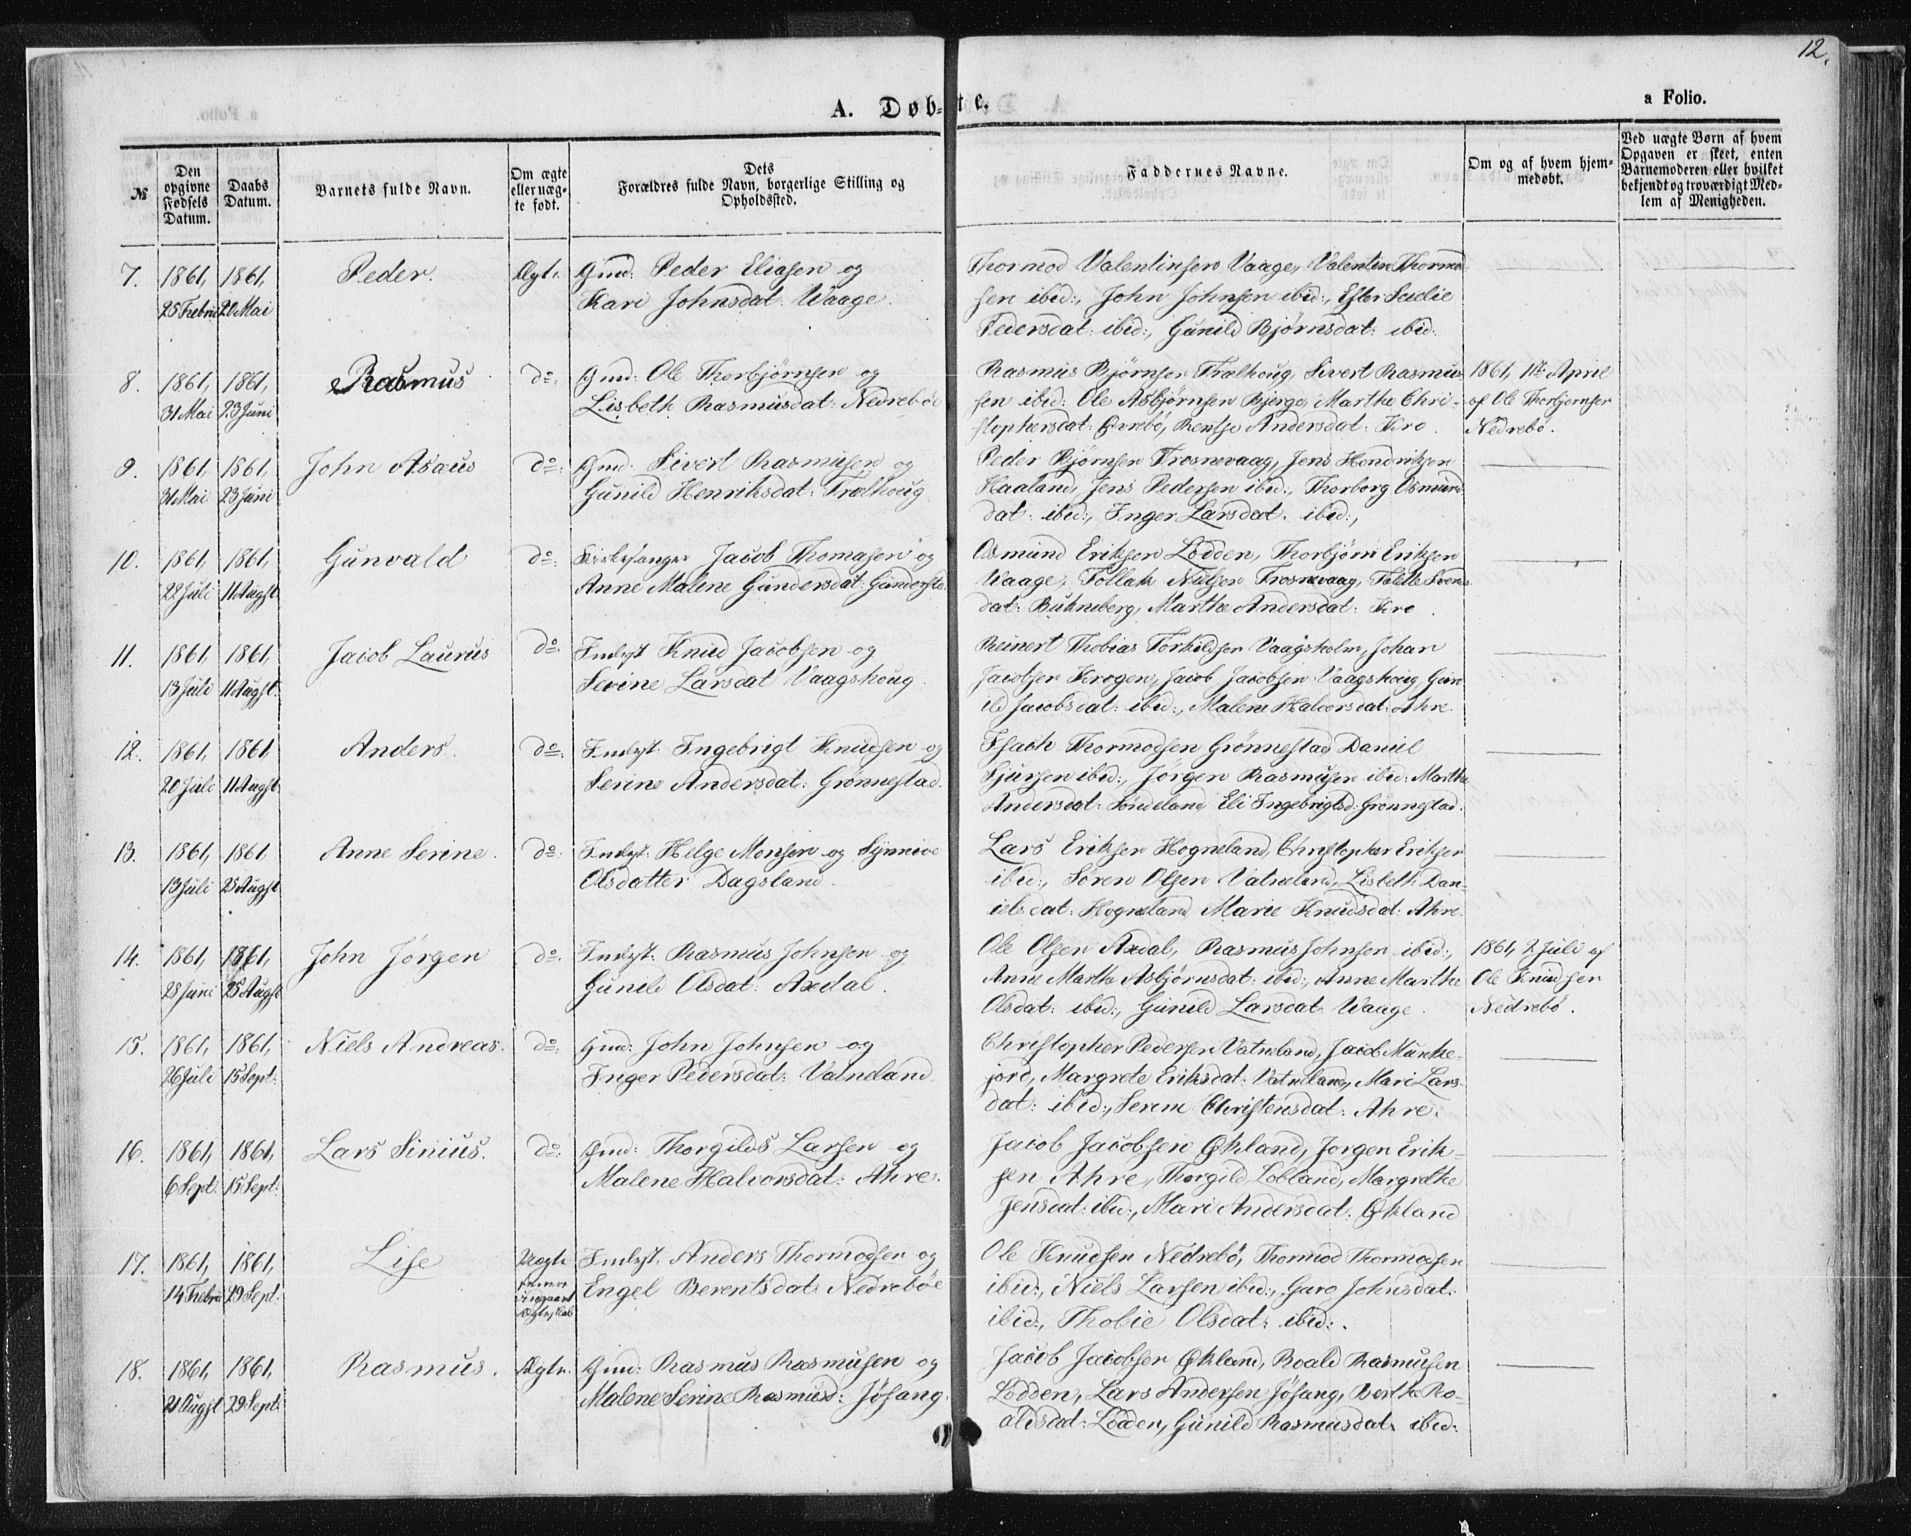 12.
A. Døbte.
a Folio.
№
Den opgivne Fødsels Datum.
Daabs Datum.
Barnets fulde Navn.
Om ægte eller uægte født.
Dets Forældres fulde Navn, borgerlige Stilling og Opholdssted.
Faddernes Navne.
Om og af hvem hjemmedøbt.
Ved uægte Børn af hvem Opgaven er skeet, enten Barnemoderen eller hvilket bekjendt og troværdigt Medlem af Menigheden.
7. 1861, 1861, Peder. Ægte. Gmd: Peder Eliasen og Thormod Valentinsen Vaage, Valentin Thormod
25 Febru 20 Mai Kari Johnsdat: Waage. sen ibid:, John Johnsen ibid:, Ester Sedie
Pedersdat: ibid:, Gunild Bjørnsdat: ibid:
8. 1861, 1861, Rasmus do: Gmd: Ole Thorbjørnsen og Rasmus Bjørnsen Trælhoug, Sivert Rasmus- 1861, 1te April
31 Mai 23 Juni Lisbeth Rasmusdat: Nedrebøe sen ibid: Ole Asbjørnsen Bjerge, Marthe Chri- af Ole Thorbjørnsen
stophersdat: Øvrebø, Rentse Andersdat: Kro. Nedrebø.
9. 1861 1861, John Asaus do: Gmd: Sivert Rasmusen og Peder Bjørnsen Trosnevaag, Jens Hendriksen
31 Mai 23 Juni Gunild Henriksdat: Trælhoug Haaland, Jens Pedersen ibid:, Thorborg Osmund
dat: ibid:, Inger Larsdat: ibid:,
10. 1861 1861, Gunvald do: Kirkesanger Jacob Thomasen og Osmund Eriksen Lodden, Thorbjørn Eriksen
22 Juli 11 Augst Anne Malene Gundersdat: Vaage, Tollak Nilsen Trosnevaag, Svens
dat: Marthe Andersdat: Kro.
11. 1861 1861. Jacob Laurus do: Indsst Knud Jacobsen og Reinert Thobias Torkildsen Vaagsholm, Johan
13 Juli 11 Augst. Serine Larsdat Vaagshoug. Jacobsen Krogen, Jacob Jacobsen Vaagshoug, Gun
ild Jacobsdat: ibid:, Malene Halvorsdat: Ahre.
12. 1861 1861 Anders. do: Indsst: Ingebrigt Knudsen og Isach Thormodsen Grønnestad Daniel
20 Juli 11 Augst Serine Andersdat: Grønnestad. Sjursen ibid:, Jørgen Rasmusen ibid: Marthe
Andersdat: Eli Ingebrigtsd: Grønnestad.
13. 1861, 1861 Anne Serine. do: Indsst: Helge Monsen og Synnive Lars Eriksen Hogneland, Christopher Eriksen
13 Juli 25 Augst Olsdatter Dagsland. ibid:, Søren Olsen Vatneland, Lisbeth Dan-
ielsdat: Hogneland Marie Knudsdat: Ahre.
14. 1861, 1861, John Jørgen do: Indsst: Rasmus Johnsen og Ole Olsen Axdal, Rasmus Johnsen ibid:, 1861, 2 Juli af
28 Juni 25 Augst Gunild Olsdat: Axdal. Anne Marthe Asbjørnsdat: ibid:, Anne Marthe Ole Knudsen
Olsdat: ibid:, Gunild Larsdat: Waage. Nedrebø.
15. 1861, 1861, Niels Andreas. do: Gmd: John Johnsen og Christopher Pedersen Vatneland, Jacob Munke-
26 Juli 15 Sept: Inger Pedersdat: Vatneland. jord, Margrete Eriksdat: Vatneland, Mari Lars-
dat: ibid:, Serine Christensdat: Ahre.
16. 1861, 1861, Lars Sinius. do: Gmd: Thorgilds Larsen og Jacob Jacobsen Økland, Jorgen Erik-
6 Sept: 15 Sept: Malene Halvorsdat: Ahre. sen Ahre, Thorgild Lobland, Margrethe
Jensdat: ibid:, Mari Andersdat: Økland
17. 1861, 1861, Lise Uægte Indsst. Anders Thormodsen og Ole Knudsen Nedrebø, Thormod Thormodsen
14 Febru 29 Sept: Engel Berentsdat: Nedrebøe ibid:, Niels Larsen ibid:, Guro Johnsdat:
ibid:, Thobie Olsdat: ibid:.
18. 1861, 1861, Rasmus. Ægte. Gmd: Rasmus Rasmusen og Jacob Jacobsen Økland, Roald Rasmusen
21 Augst 29 Sept: Malene Serine Rasmusd: Jøsang. Lodden, Lars Andersen Jøsang, Berthe Ro-
aldsdat: Lodden, Gunild Rasmusdat: ibid: